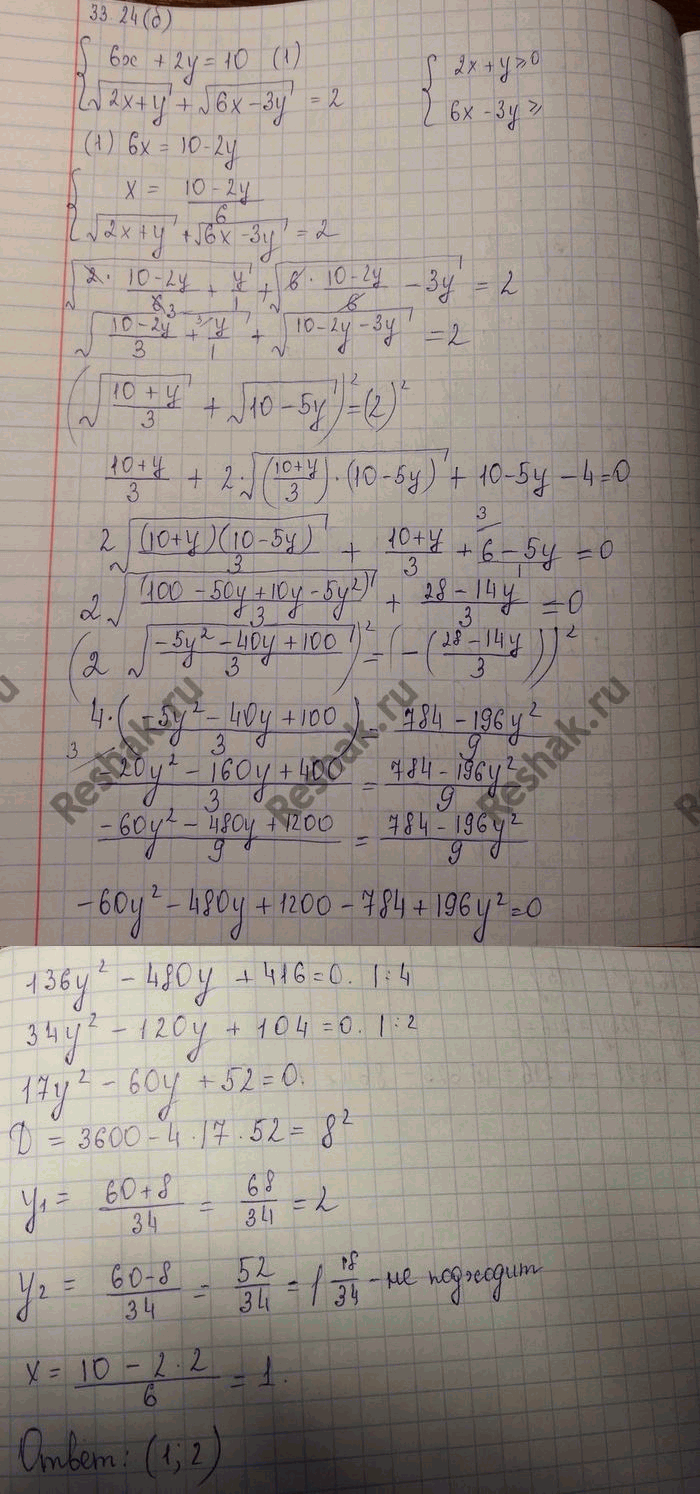 33.24(б)
{ 6x + 2y = 10 (1)
√(2x+y) + √(6x-3y) = 2
{ 2x+y ≥ 0
6x-3y ≥
(1) 6x = 10-2y
{ x = (10-2y)/6
√(2x+y) + √(6x-3y) = 2
√(2·(10-2y)/6 3 + y/1) + √(6·(10-2y)/6 - 3y) = 2
√((10-2y)/3 + 3/ y/1) + √(10-2y-3y) = 2
(√((10+y)/3) + √(10-5y))² = (2)²
(10+y)/3 + 2·√(((10+y)/3)·(10-5y)) + 10-5y-4=0
2√((10+y)(10-5y)/3) + (10+y)/3 + 3/ (6-5y)/1 = 0
2√((100-50y+10y-5y²)/3) + (28-14y)/3 = 0
(2 √((-5y²-40y+100)/3))² = (-((28-14y)/3))²
4·((-5y²-40y+100)/3) = (784-196y²)/9
3/ (-20y²-160y+400)/3 = (784-196y²)/9
(-60y²-480y+1200)/9 = (784-196y²)/9
-60y²-480y+1200-784+196y²=0
136y²-480y+416=0. |:4
34y²-120y+104=0. |:2
17y²-60y+52=0.
D = 3600-4·17·52 = 8²
y₁ = (60+8)/34 = 68/34 = 2
y₂ = (60-8)/34 = 52/34 = 1 18/34 - не подходит
x = (10-2·2)/6 = 1.
Ответ: (1; 2)
Reshak.ru
Reshak.ru
Reshak.ru